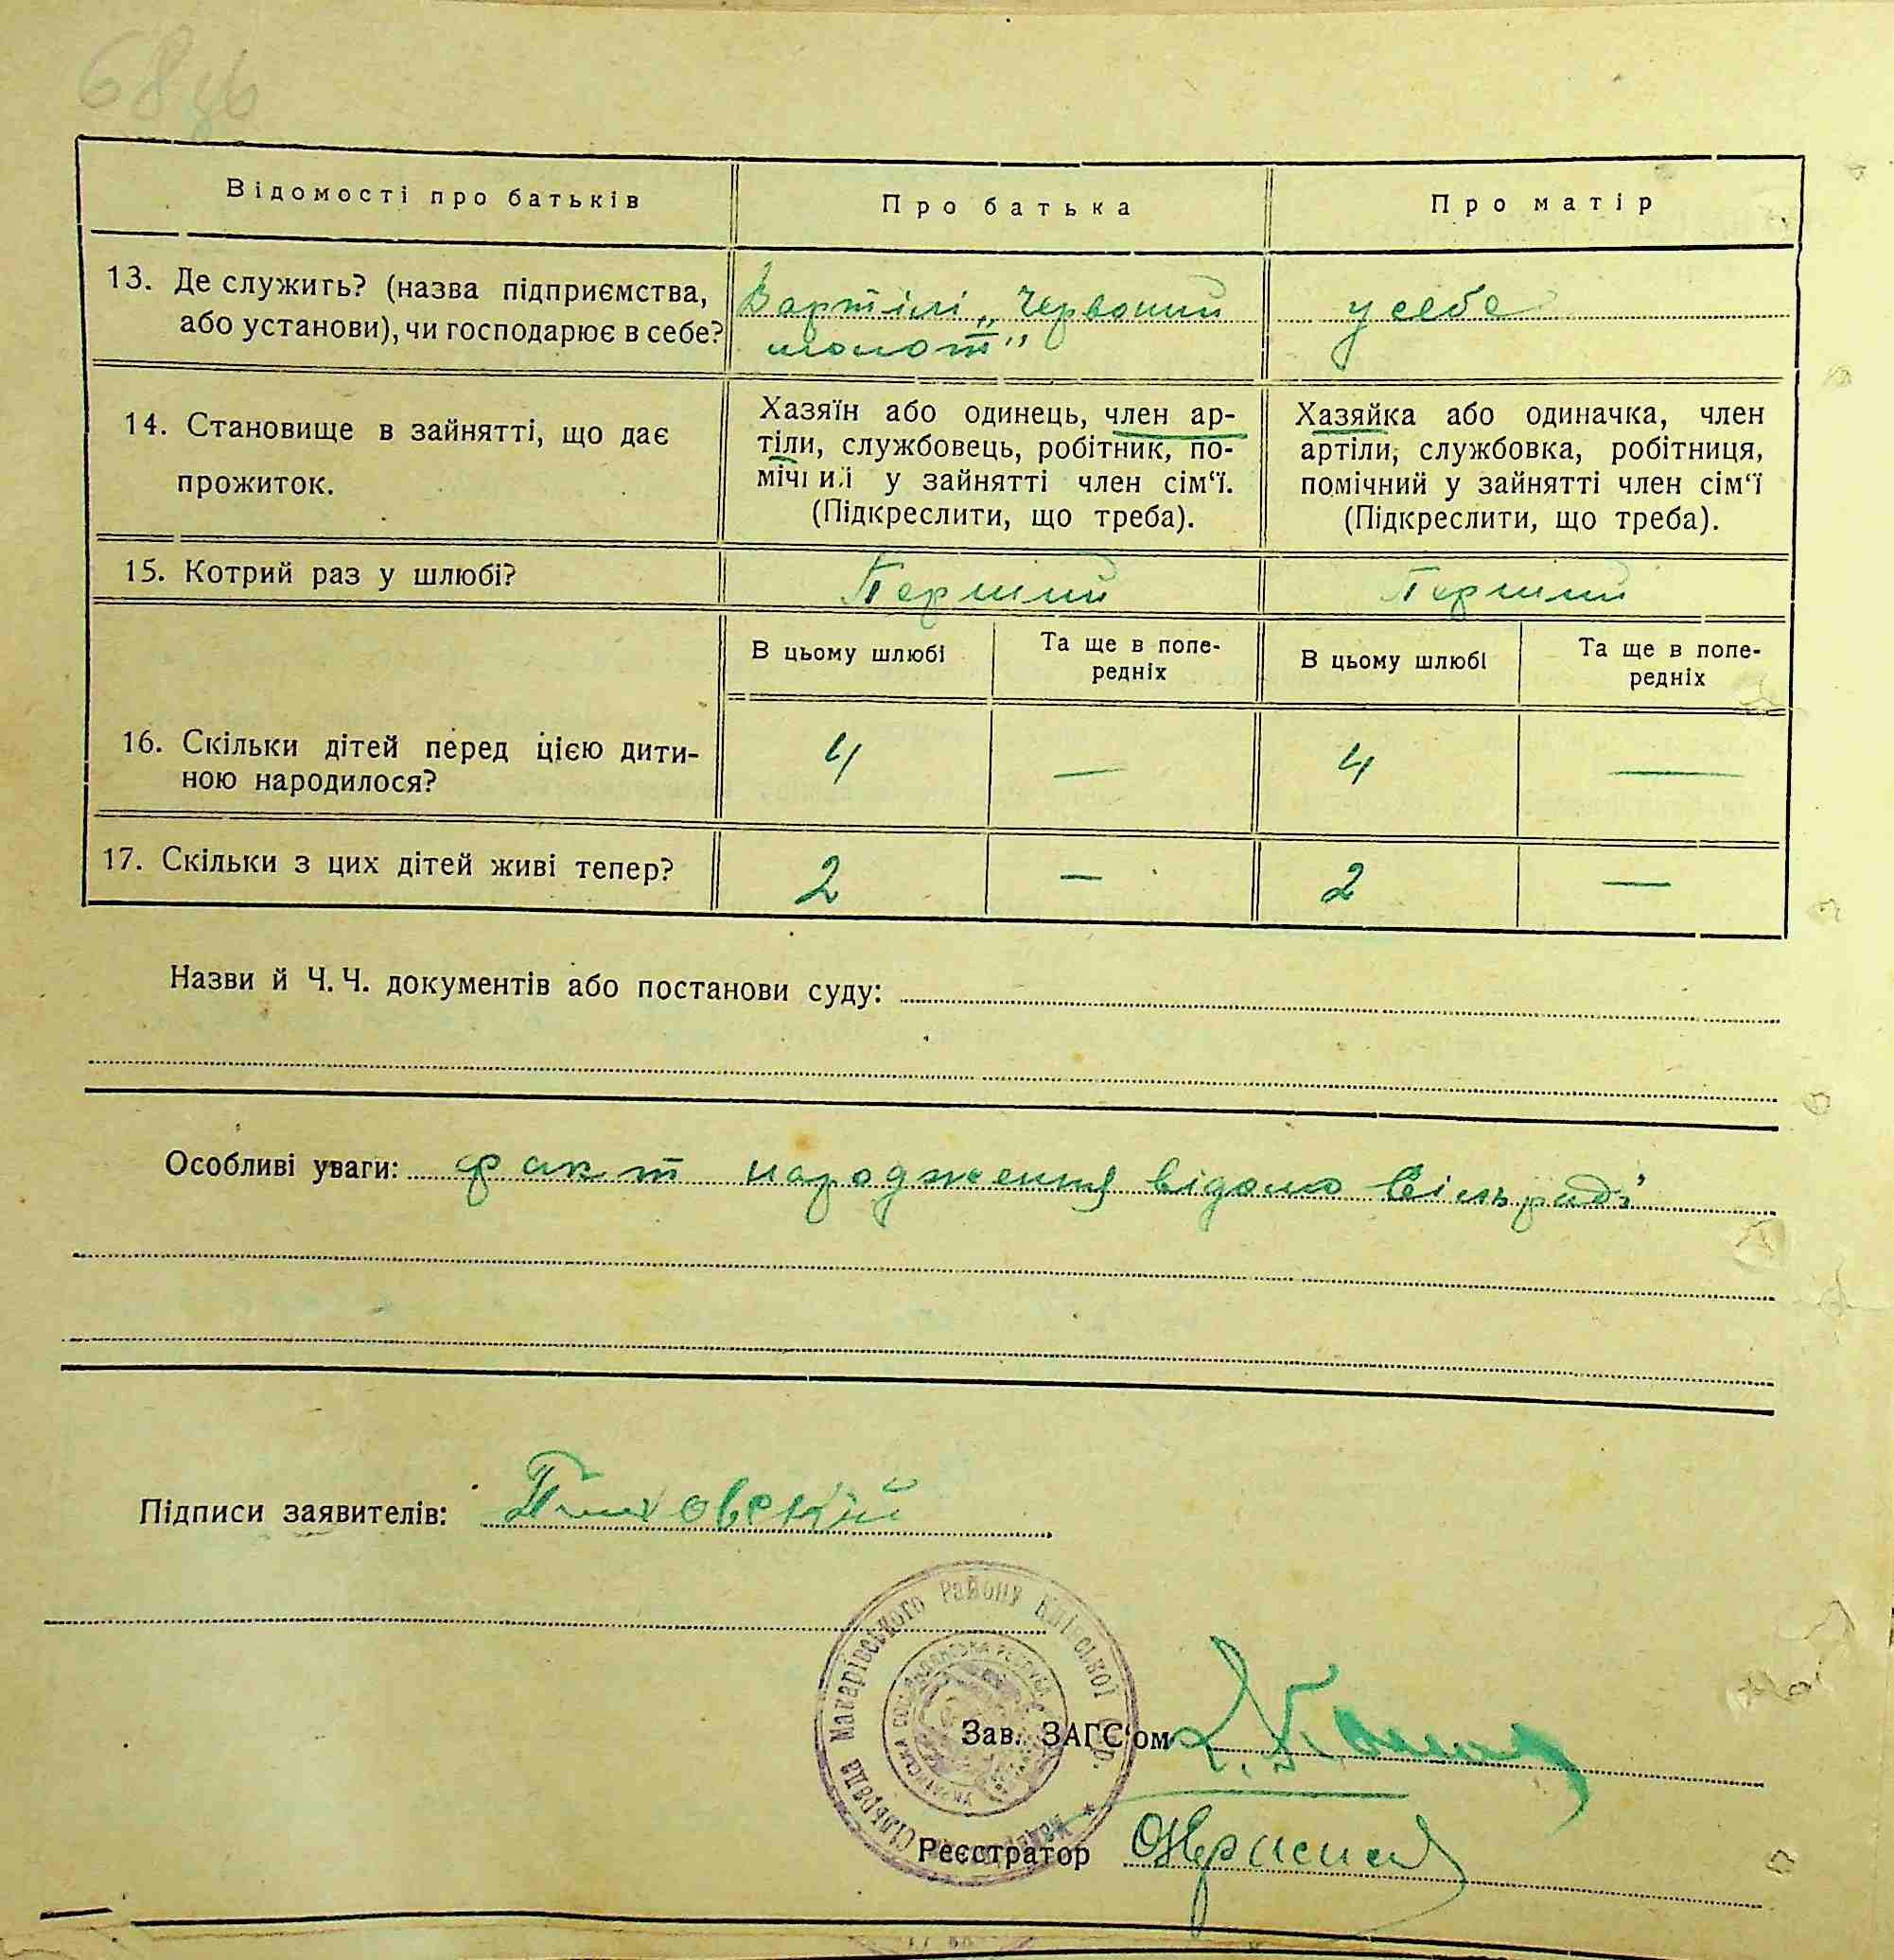 68
Відомості про батьків
Про батька
Про матір
13. Де служить? (назва підприємства,
або установи), чи господарює в себе?
В артілі „Червоний
молот"
у себе
14. Становище в зайнятті, що дає
прожиток.
Хазяїн або одинець, член ар-
тіли, службовець, робітник, по-
мічний у зайнятті член сім‘ї.
(Підкреслити, що треба).
Хазяйка або одиначка, член
артіли, службовка, робітниця,
помічний у зайнятті член сім‘ї
(Підкреслити, що треба).
15. Котрий раз у шлюбі?
Перший
Перший
В цьому шлюбі
Та ще в попе-
редніх
В цьому шлюбі
Та ще в попе-
редніх
16. Скільки дітей перед цією дити-
ною народилося?
4
—
4
—
17. Скільки з цих дітей живі тепер?
2
—
2
—
Назви й Ч. Ч. документів або постанови суду:
Особливі уваги: факт народження відомо Сільраді
Підписи заявителів:
Сільрада Макарівського Району Київської Окр.
Зав. ЗАГС‘ом
Реєстратор